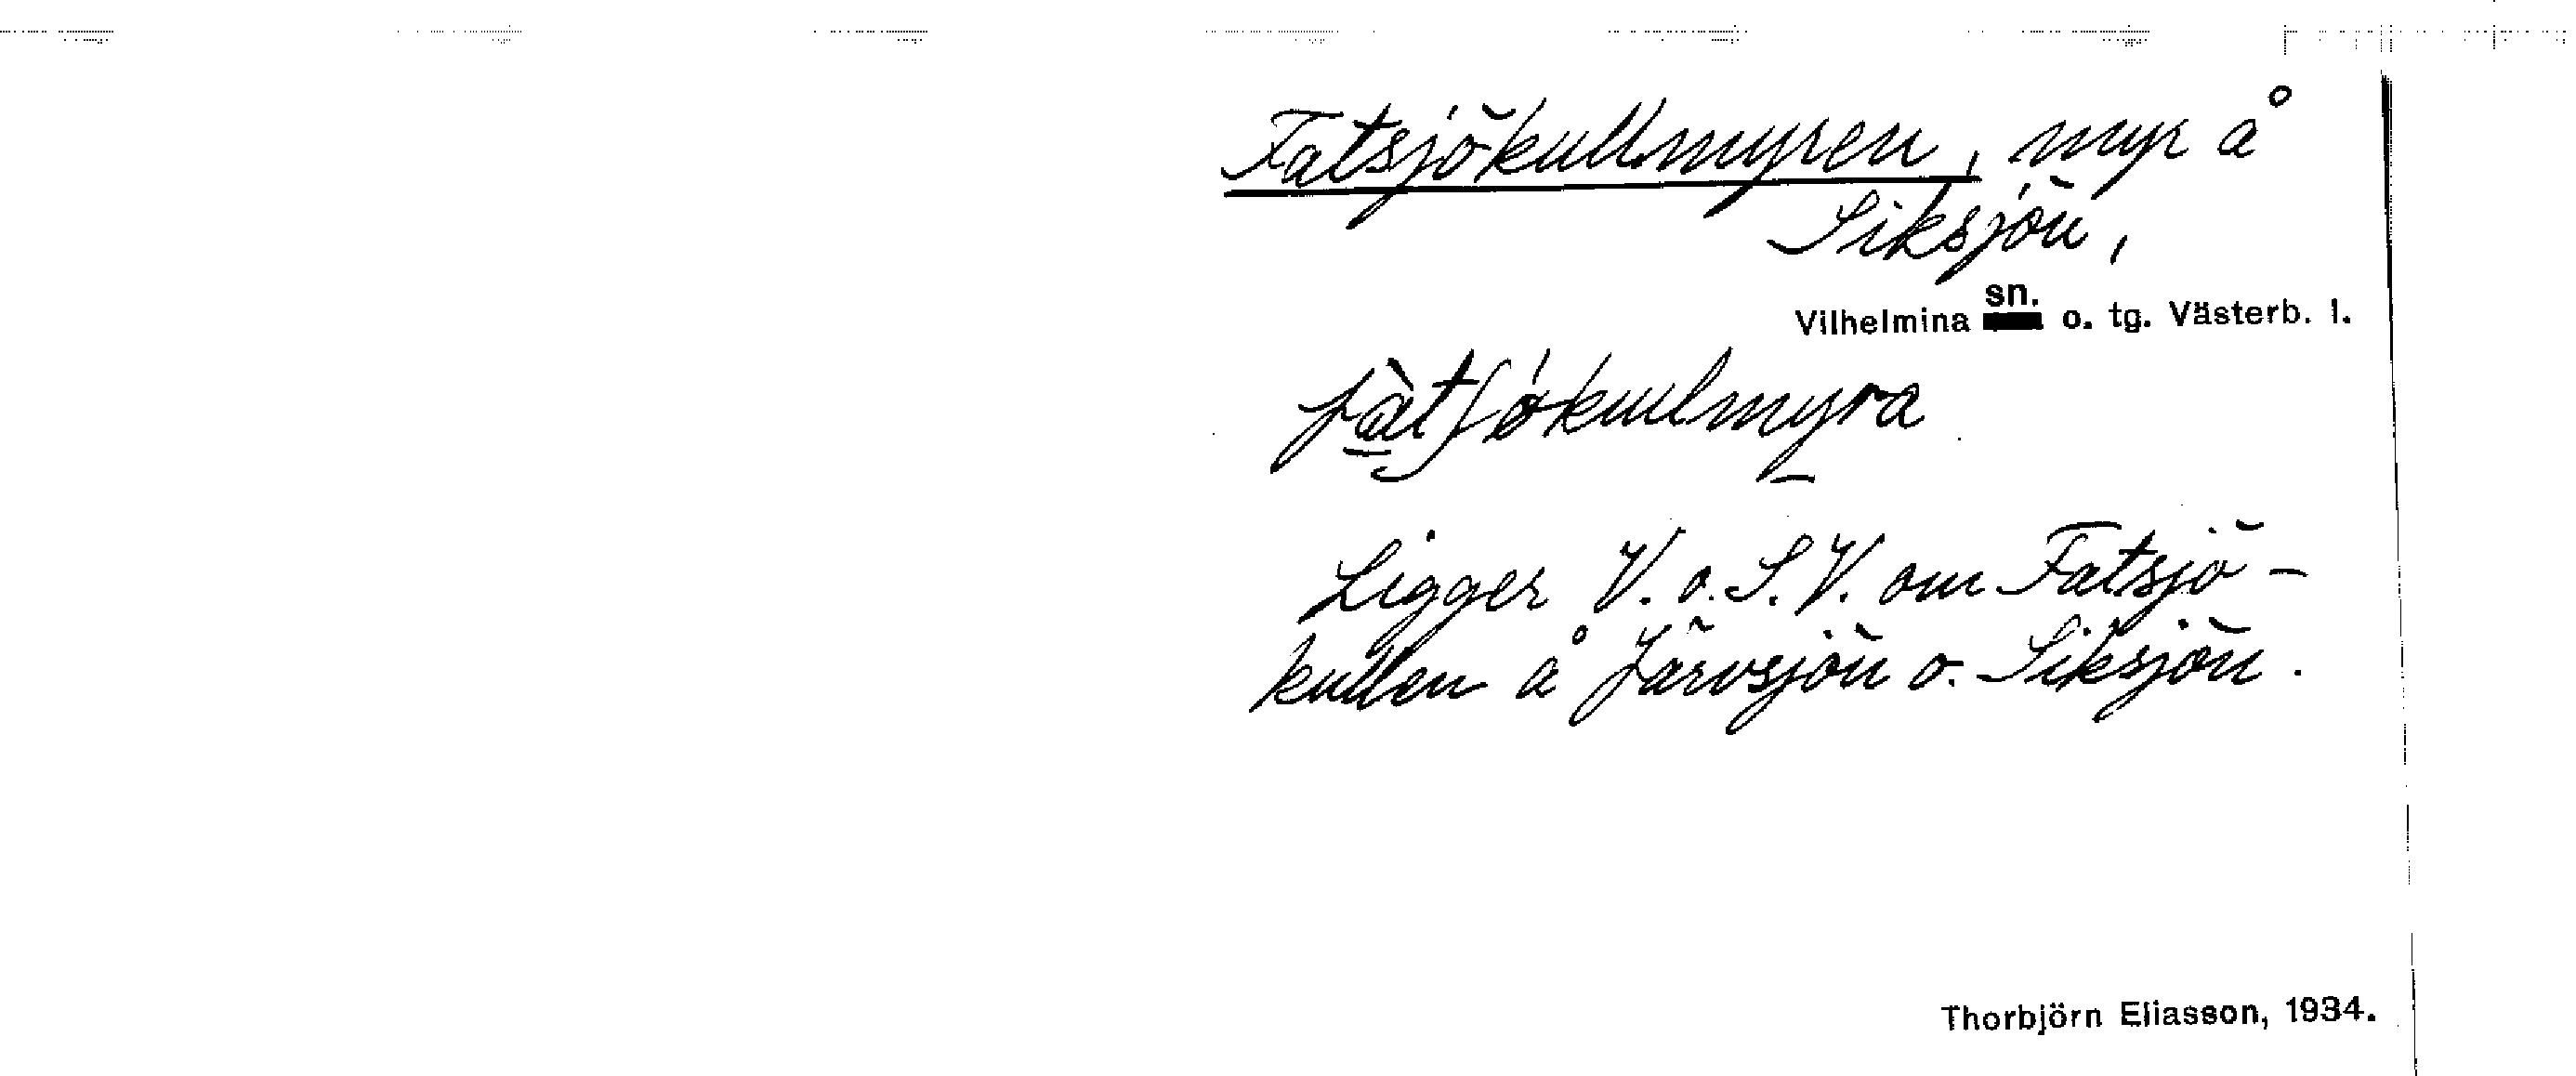 Fatsjökullmyren, myr å
Siksjön,
Vilhelmina sn. o. tg. Västerb. l.
fàtʃökulmyra
Ligger V. o. S.V. om Fatsjö-
kullen å Järvsjön o. Siksjön.
Thorbjörn Eliasson, 1934.